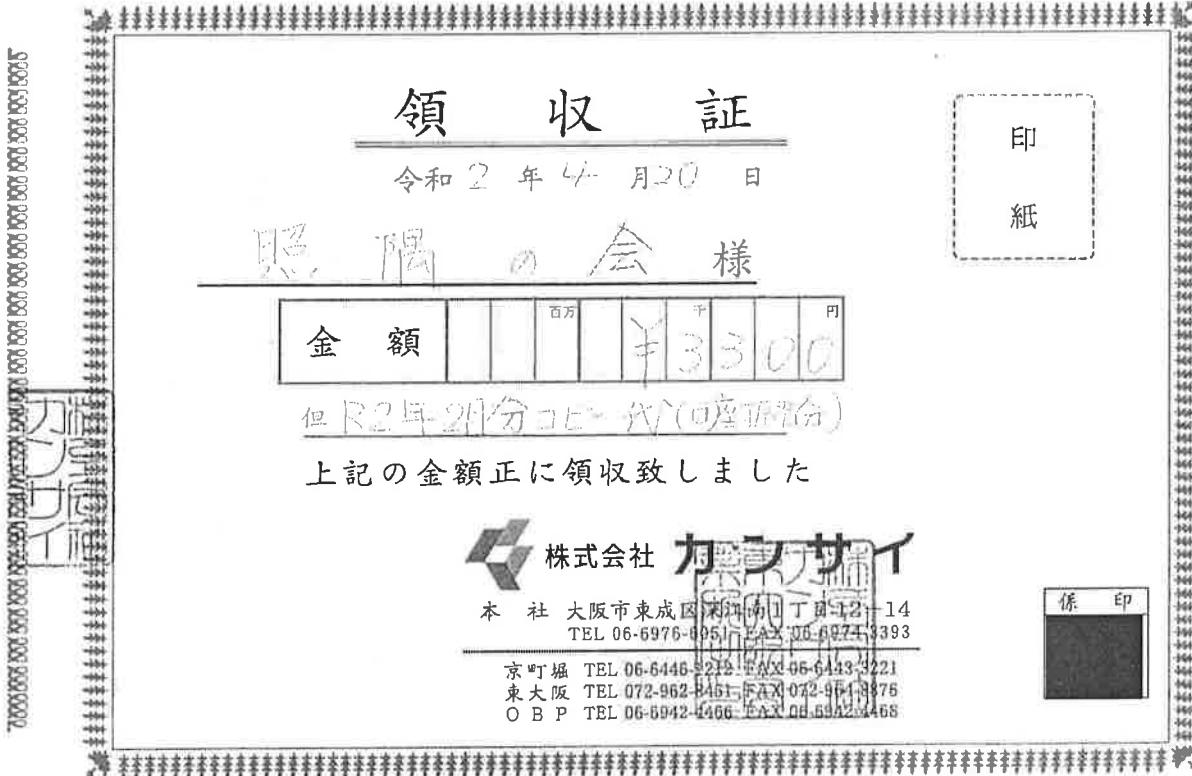 領収証
印紙
令和2年4月20日
照隅の会様
百万 千 円
金額 ¥3300
但R2年2月分コピー代
上記の金額正に領収致しました
株式会社カンサイ
本社 大阪市東成区深江南1丁目12-14
TEL 06-6976- FAX 06-6974-3393
京町堀 TEL 06-6446-3212 FAX 06-6443-3221
東大阪 TEL 072-962-8451 FAX 072-964-8876
OBP TEL 06-6942-4466 FAX 06-6942-4468
係印
株式会社カンサイ